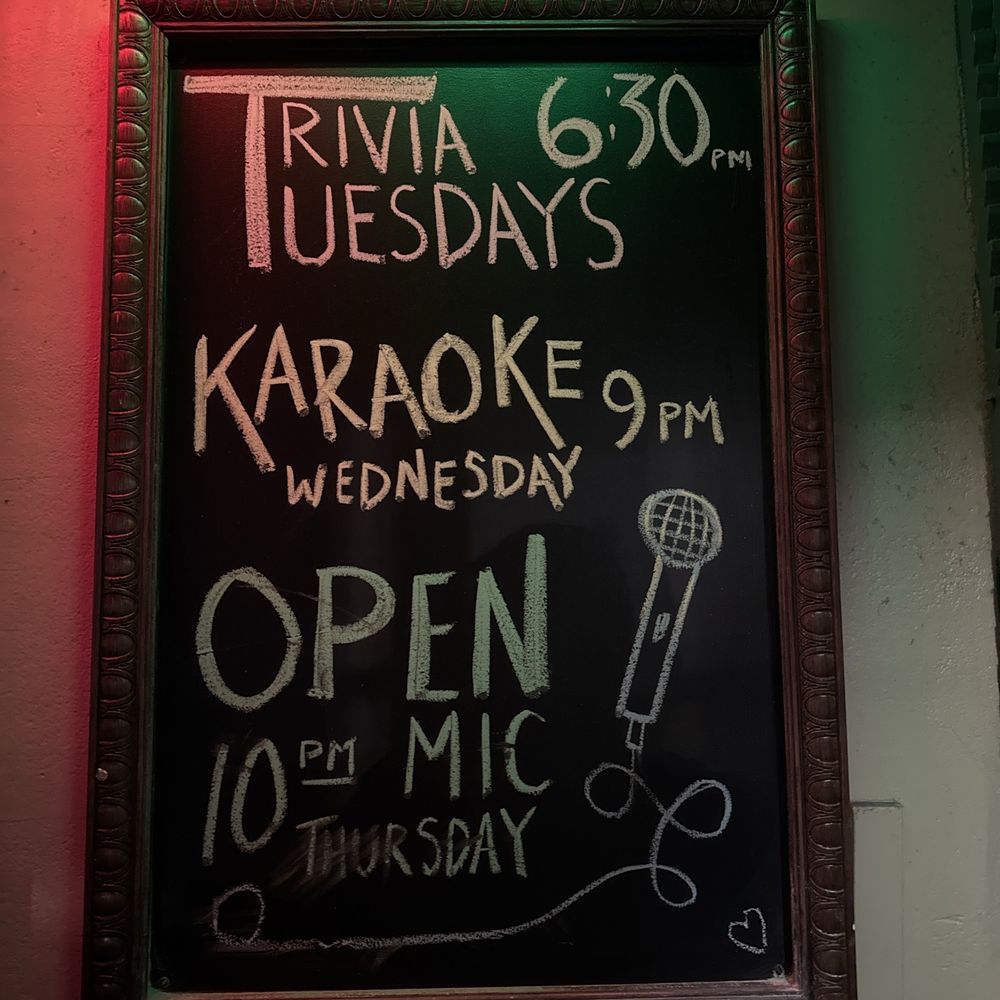 TRIVIA 6:30 PM
TUESDAYS
KARAOKE 9 PM
WEDNESDAY
OPEN
10 PM MIC
THURSDAY